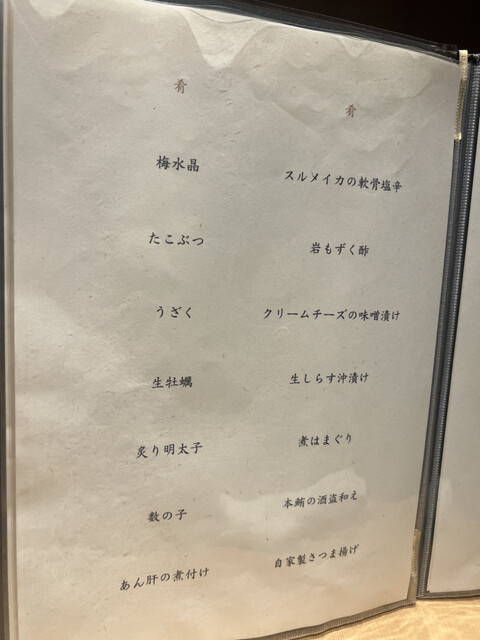 肴
梅水晶
たこぶつ
うざく
生牡蠣
炙り明太子
数の子
あん肝の煮付け
肴
スルメイカの軟骨塩辛
岩もずく酢
クリームチーズの味噌漬け
生しらす沖漬け
煮はまぐり
本鮪の酒盗和え
自家製さつま揚げ